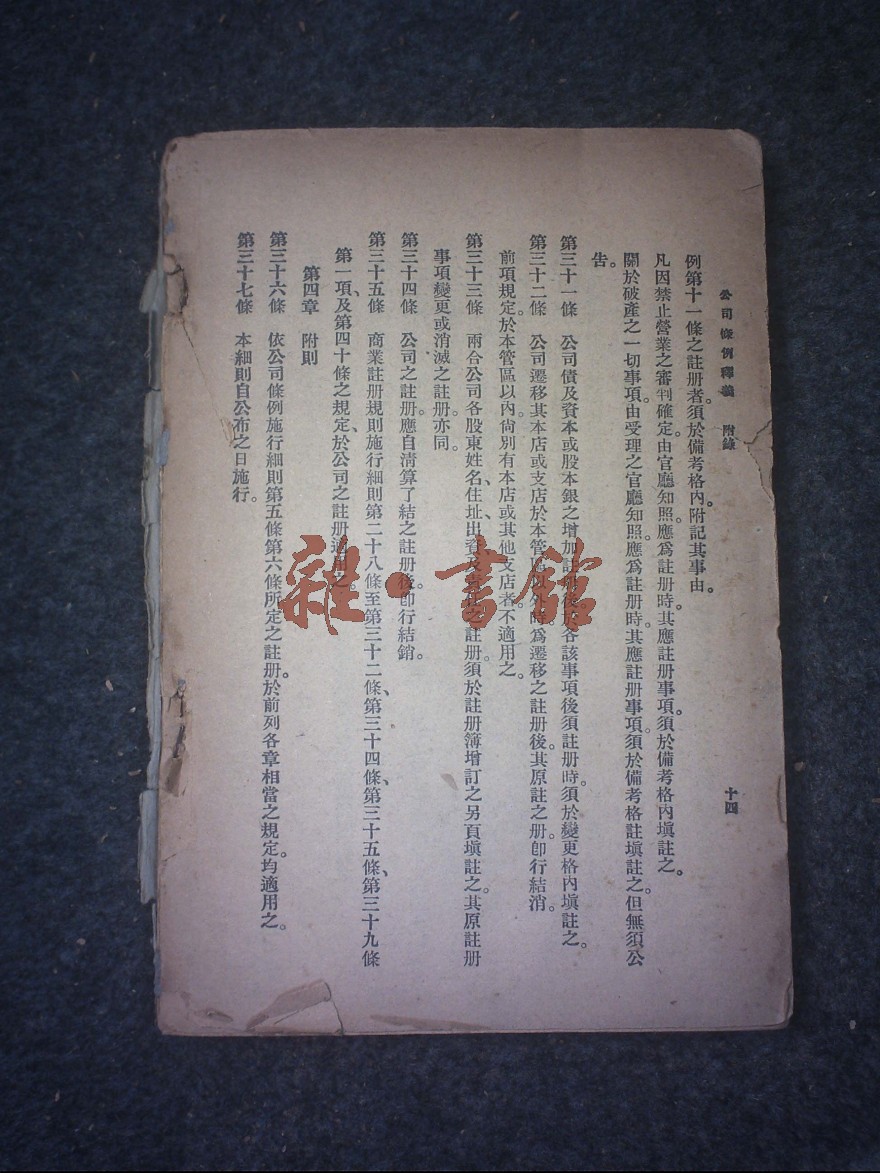 公司條例釋義 附錄 十四
例第十一條之註册者。須於備考格內。附記其事由。
凡因禁止營業之審判確定。由官廳知照。應爲註册時。其應註册事項。須於備考格內塡註之。
關於破產之一切事項。由受理之官廳知照。應爲註册時。其應註册事項。須於備考格註塡註之。但無須公
告。
第三十一條 公司債及資本或股本銀之增加註册後。於各該事項後須註册時。須於變更格內塡註之。
第三十二條 公司遷移其本店或支店於本管區以外時。爲遷移之註册後。其原註之册。卽行結消。
前項規定。於本管區以內。尙別有本店或其他支店者。不適用之。
第三十三條 兩合公司各股東姓名、住址、出資及責任之註册。須於註册簿增訂之另頁塡註之。其原註册
事項變更或消滅之註册。亦同。
第三十四條 公司之註册。應自淸算了結之註册後。卽行結銷。
第三十五條 商業註册規則施行細則第二十八條至第三十二條、第三十四條、第三十五條、第三十九條
第一項、及第四十條之規定、於公司之註册適用之。
第四章 附則
第三十六條 依公司條例施行細則第五條第六條所定之註册。於前列各章相當之規定。均適用之。
第三十七條 本細則自公布之日施行。
雜·書館